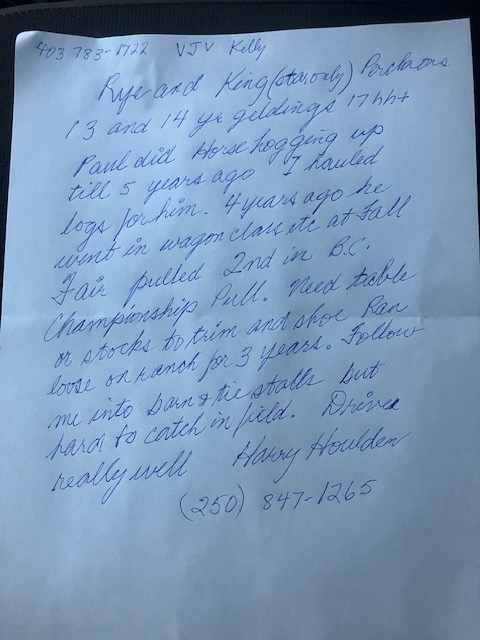 403 783-1722 VJV Kelly
Rye and King (star, only) Percherons
13 and 14 yr geldings 17hh+
Paul did Horse logging up
till 5 years ago I hauled
logs for him. 4 years ago he
went in wagon class etc at Fall
Fair pulled 2nd in B.C.
Championship Pull. Need table
or stocks to trim and shoe Ran
loose on ranch for 3 years. Follow
me into barn & tie stalls but
hard to catch in field. Drives
really well Harry Houlden
(250) 847-1265